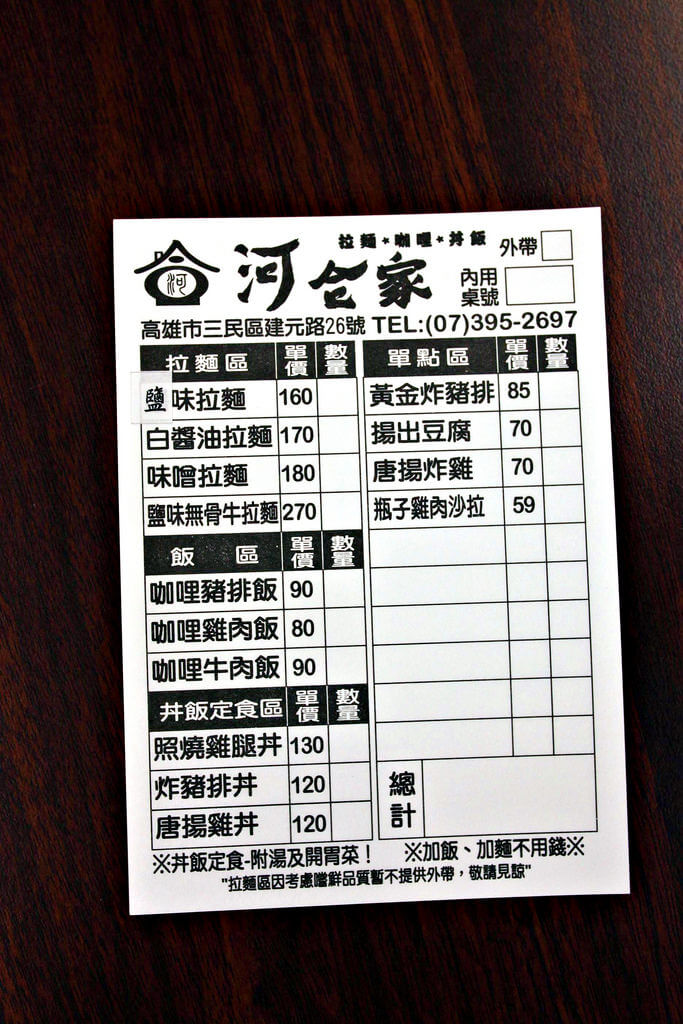 拉麵★咖哩★丼飯
河
河合家
外帶
內用
桌號
高雄市三民區建元路26號 TEL:(07)395-2697
拉麵區 單價 數量
鹽味拉麵 160
白醬油拉麵 170
味噌拉麵 180
鹽味無骨牛拉麵 270
飯 區 單價 數量
咖哩豬排飯 90
咖哩雞肉飯 80
咖哩牛肉飯 90
丼飯定食區 單價 數量
照燒雞腿丼 130
炸豬排丼 120
唐揚雞丼 120
單點區 單價 數量
黃金炸豬排 85
揚出豆腐 70
唐揚炸雞 70
瓶子雞肉沙拉 59
總計
※丼飯定食-附湯及開胃菜！ ※加飯、加麵不用錢※
"拉麵區因考慮嚐鮮品質暫不提供外帶，敬請見諒"